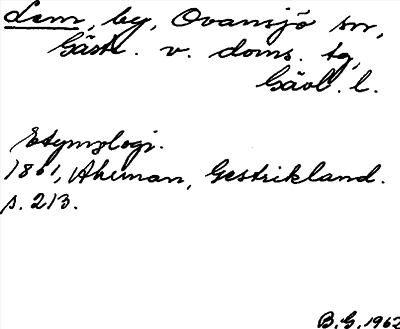 Lem, by, Ovansjö sn,
Gästr. v. doms. tg,
Gävl. l.
Etymologi.
1861, Ahrman, Gestrikland.
s. 213.
B.G. 1962